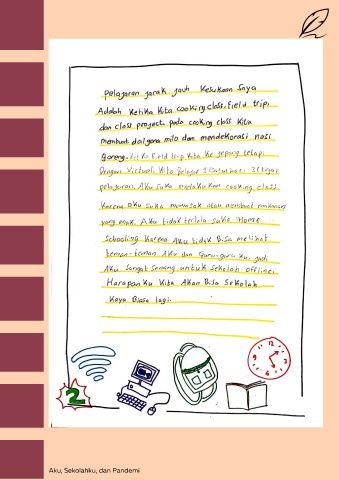 Pelajaran jarak jauh kesukaan saya
Adalah ketika kita cooking class, Field trip,
dan class project. pada cooking class kita
membuat dalgona milo dan mendekorasi nasi
goreng. ketika field trip kita ke jepang tetapi
Dengan virtual. kita belajar 1 sama hari. 3
pelajaran. Aku suka melakukan cooking class
karena aku suka memasak atau membuat makanan
yang enak. Aku tidak terlalu suka Home
schooling karena Aku tidak Bisa melihat
teman-teman Aku dan guru-guru ku. jadi
Aku sangat senang untuk sekolah offline.
Harapan ku kita Akan Bisa sekolah
kaya Biasa lagi.
2
Aku, Sekolahku, dan Pandemi